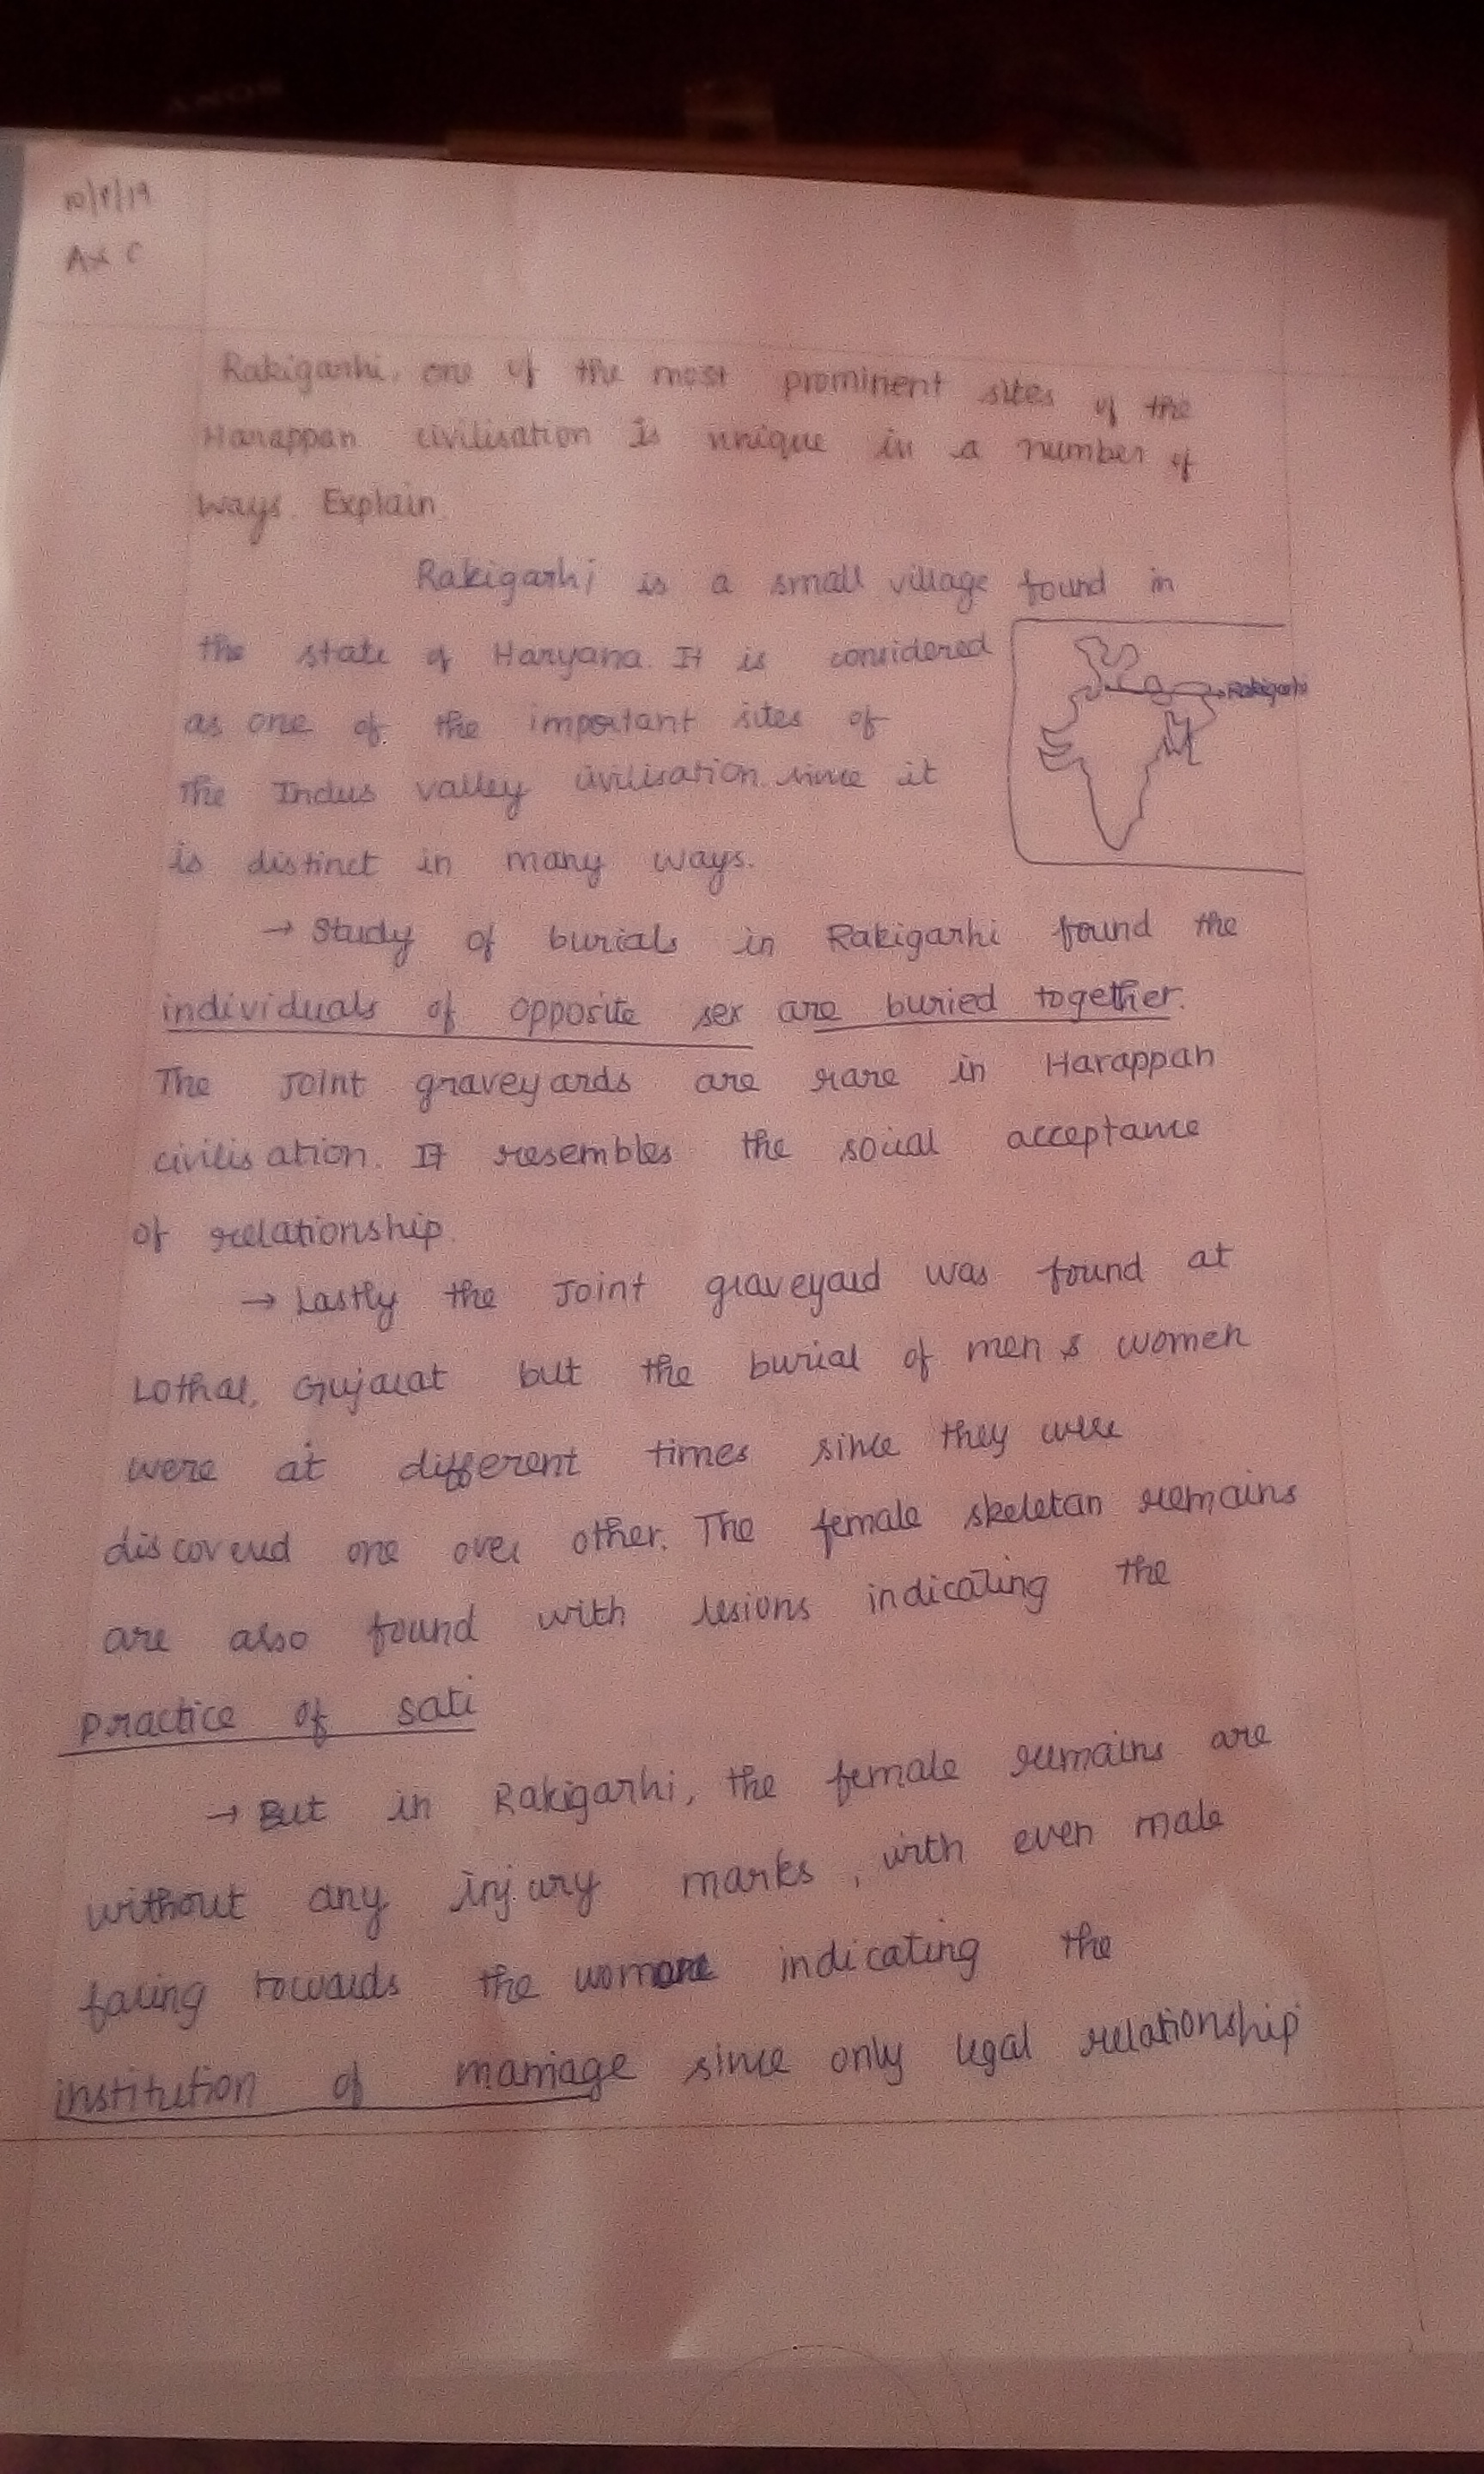 10/9/19
A&C
Rakigarhi, one of the most prominent sites of the
Harappan civilisation is unique in a number of
ways. Explain.
Rakigarhi is a small village found in
the state of Haryana. It is considered
as one of the important sites of
the Indus valley civilisation since it
is distinct in many ways.
Rakigarhi
→ Study of burials in Rakigarhi found the
individuals of opposite sex are buried together.
The Joint graveyards are rare in Harappan
civilisation. It resembles the social acceptance
of relationship.
→ Lastly the Joint graveyard was found at
Lothal, Gujarat but the burial of men & women
were at different times since they were
discovered one over other. The female skeletan remains
are also found with lesions indicating the
practice of sati
→ But in Rakigarhi, the female remains are
without any injury marks, with even male
facing towards the indicating the
institution of marriage since only legal relationship